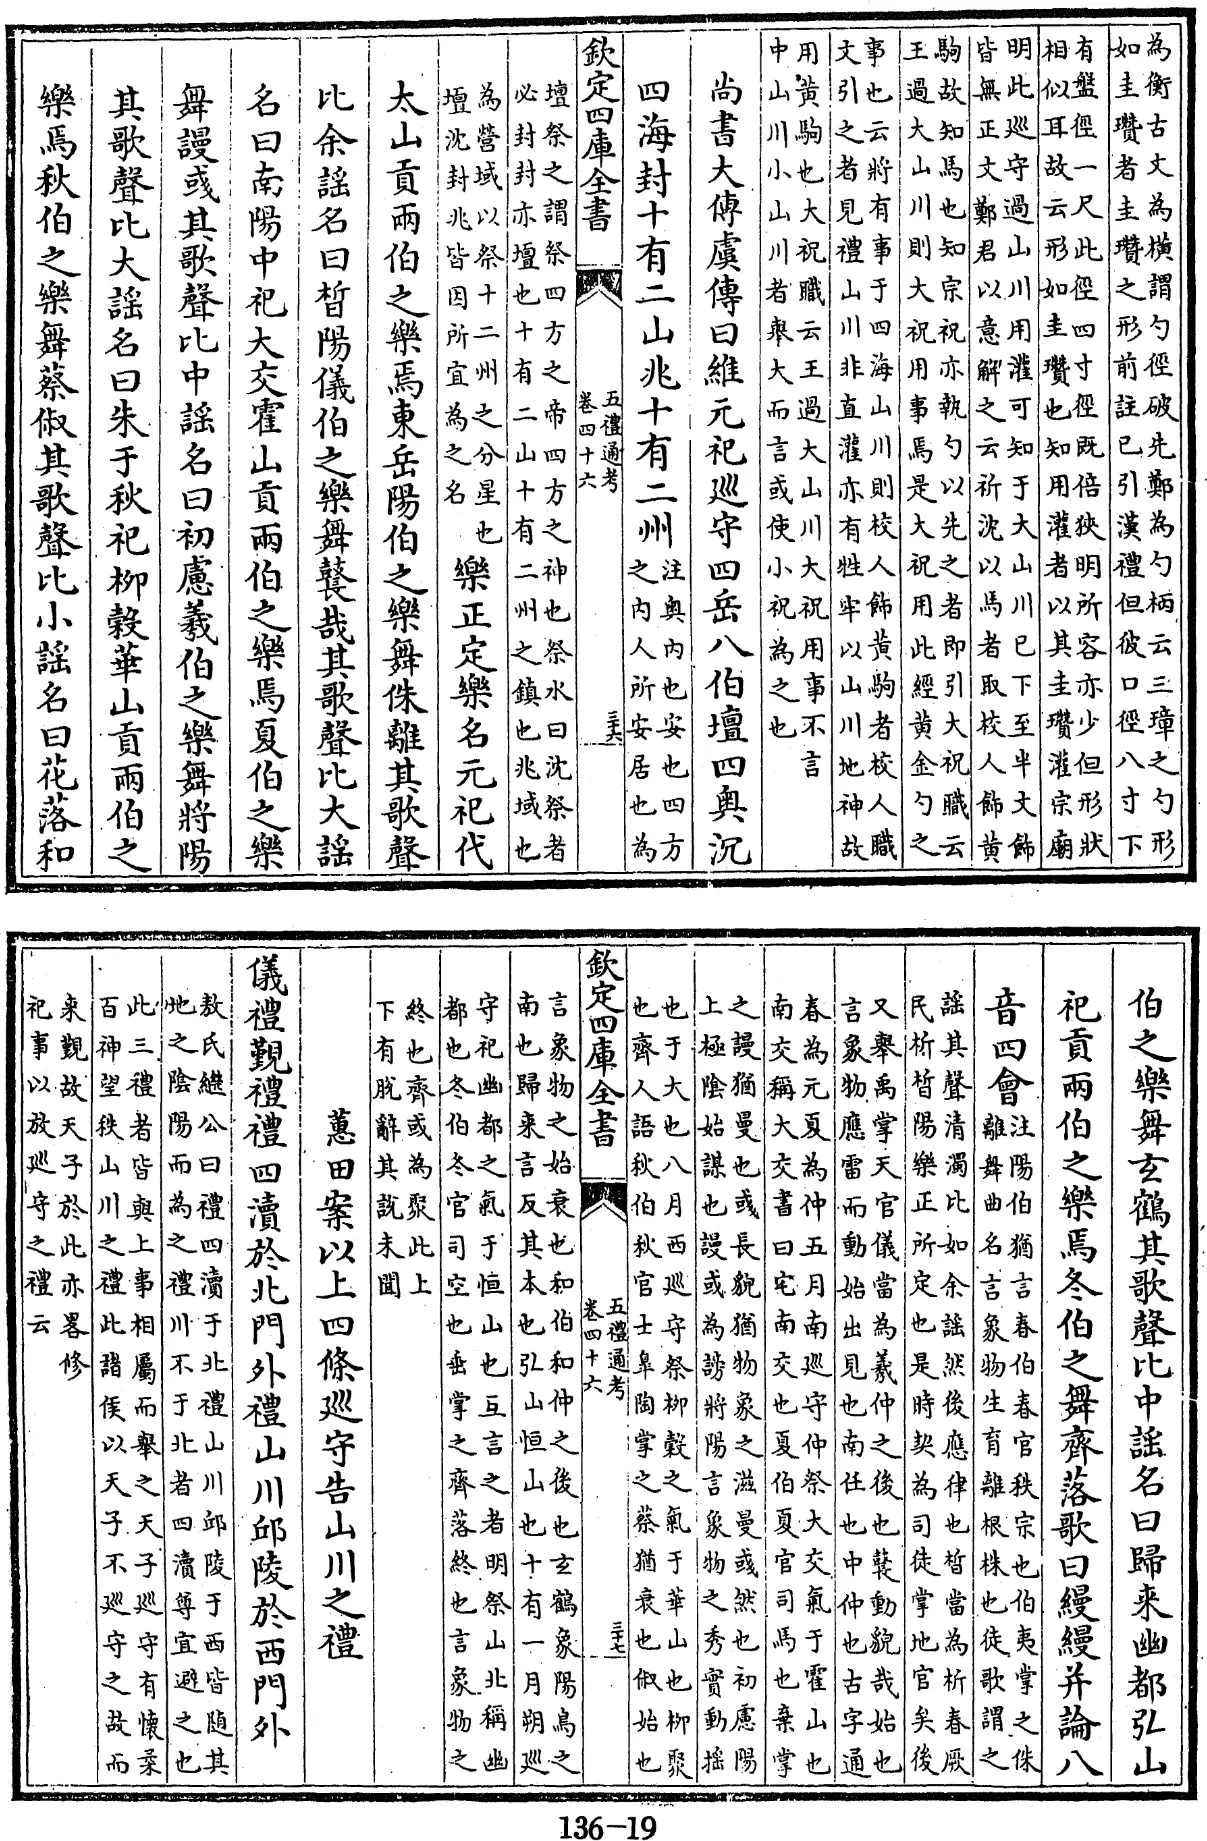 為衡古文為橫謂勺徑破先鄭為勺柄云三璋之勺形
如圭瓚者圭瓚之形前註已引漢禮但彼口徑八寸下
有盤徑一尺此徑四寸徑既倍狹明所容亦少但形狀
相似耳故云形如圭瓚也知用灌者以其圭瓚灌宗廟
明此巡守過山川用灌可知于大山川已下至半文飾
皆無正文鄭君以意解之云祈沈以馬者取校人飾黃
駒故知馬也知宗祝亦執勺以先之者即引大祝職云
王過大山川則大祝用事焉是大祝用此經黃金勺之
事也云將有事于四海山川則校人飾黃駒者校人職
文引之者見禮山川非直灌亦有牲牢以山川地神故
用黃駒也大祝職云王過大山川大祝用事不言
中山川小山川者舉大而言或使小祝為之也
尚書大傳虞傳曰維元祀巡守四岳八伯壇四奧沉
四海封十有二山兆十有二州
注奧內也安也四方
之內人所安居也為
欽定四庫全書
五禮通考
卷四十六
三六
壇祭之謂祭四方之帝四方之神也祭水曰沈祭者
必封封亦壇也十有二山十有二州之鎮也兆域也
為營域以祭十二州之分星也
壇沈封兆皆因所宜為之名
樂正定樂名元祀代
太山貢兩伯之樂焉東岳陽伯之樂舞侏離其歌聲
比余謠名曰晳陽儀伯之樂舞鼚哉其歌聲比大謠
名曰南陽中祀大交霍山貢兩伯之樂焉夏伯之樂
舞謾彧其歌聲比中謠名曰初慮羲伯之樂舞將陽
其歌聲比大謠名曰朱于秋祀柳榖華山貢兩伯之
樂焉秋伯之樂舞蔡俶其歌聲比小謠名曰花落和
伯之樂舞玄鶴其歌聲比中謠名曰歸来幽都弘山
祀貢兩伯之樂焉冬伯之舞齊落歌曰縵縵并論八
音四會
注陽伯猶言春伯春官秩宗也伯夷掌之侏
離舞曲名言象物生育離根株也徒歌謂之
謠其聲清濁比如余謠然後應律也晳當為析春厥
民析晳陽樂正所定也是時契為司徒掌地官矣後
又舉禹掌天官儀當為羲仲之後也鼚動貌哉始也
言象物應雷而動始出見也南任也中仲也古字通
春為元夏為仲五月南巡守仲祭大交氣于霍山也
南交稱大交書曰宅南交也夏伯夏官司馬也棄掌
之謾猶曼也彧長貌猶物象之滋曼彧然也初慮陽
上極陰始謀也謾或為謗將陽言象物之秀實動搖
也于大也八月西巡守祭柳榖之氣于華山也柳聚
也齊人語秋伯秋官士臯陶掌之蔡猶衰也俶始也
欽定四庫全書
五禮通考
卷四十六
三七
言象物之始衰也和伯和仲之後也玄鶴象陽鳥之
南也歸来言反其本也弘山恒山也十有一月朔巡
守祀幽都之氣于恒山也互言之者明祭山北稱幽
都也冬伯冬官司空也垂掌之齊落終也言象物之
終也齊或為聚此上
下有脫辭其說未聞
蕙田案以上四條巡守告山川之禮
儀禮覲禮禮四瀆於北門外禮山川邱陵於西門外
敖氏繼公曰禮四瀆于北禮山川邱陵于西皆随其
地之陰陽而為之禮川不于北者四瀆尊宜避之也
此三禮者皆與上事相屬而舉之天子巡守有懷柔
百神望秩山川之禮此諸侯以天子不巡守之故而
来覲故天子於此亦畧修
祀事以放巡守之禮云
136-19